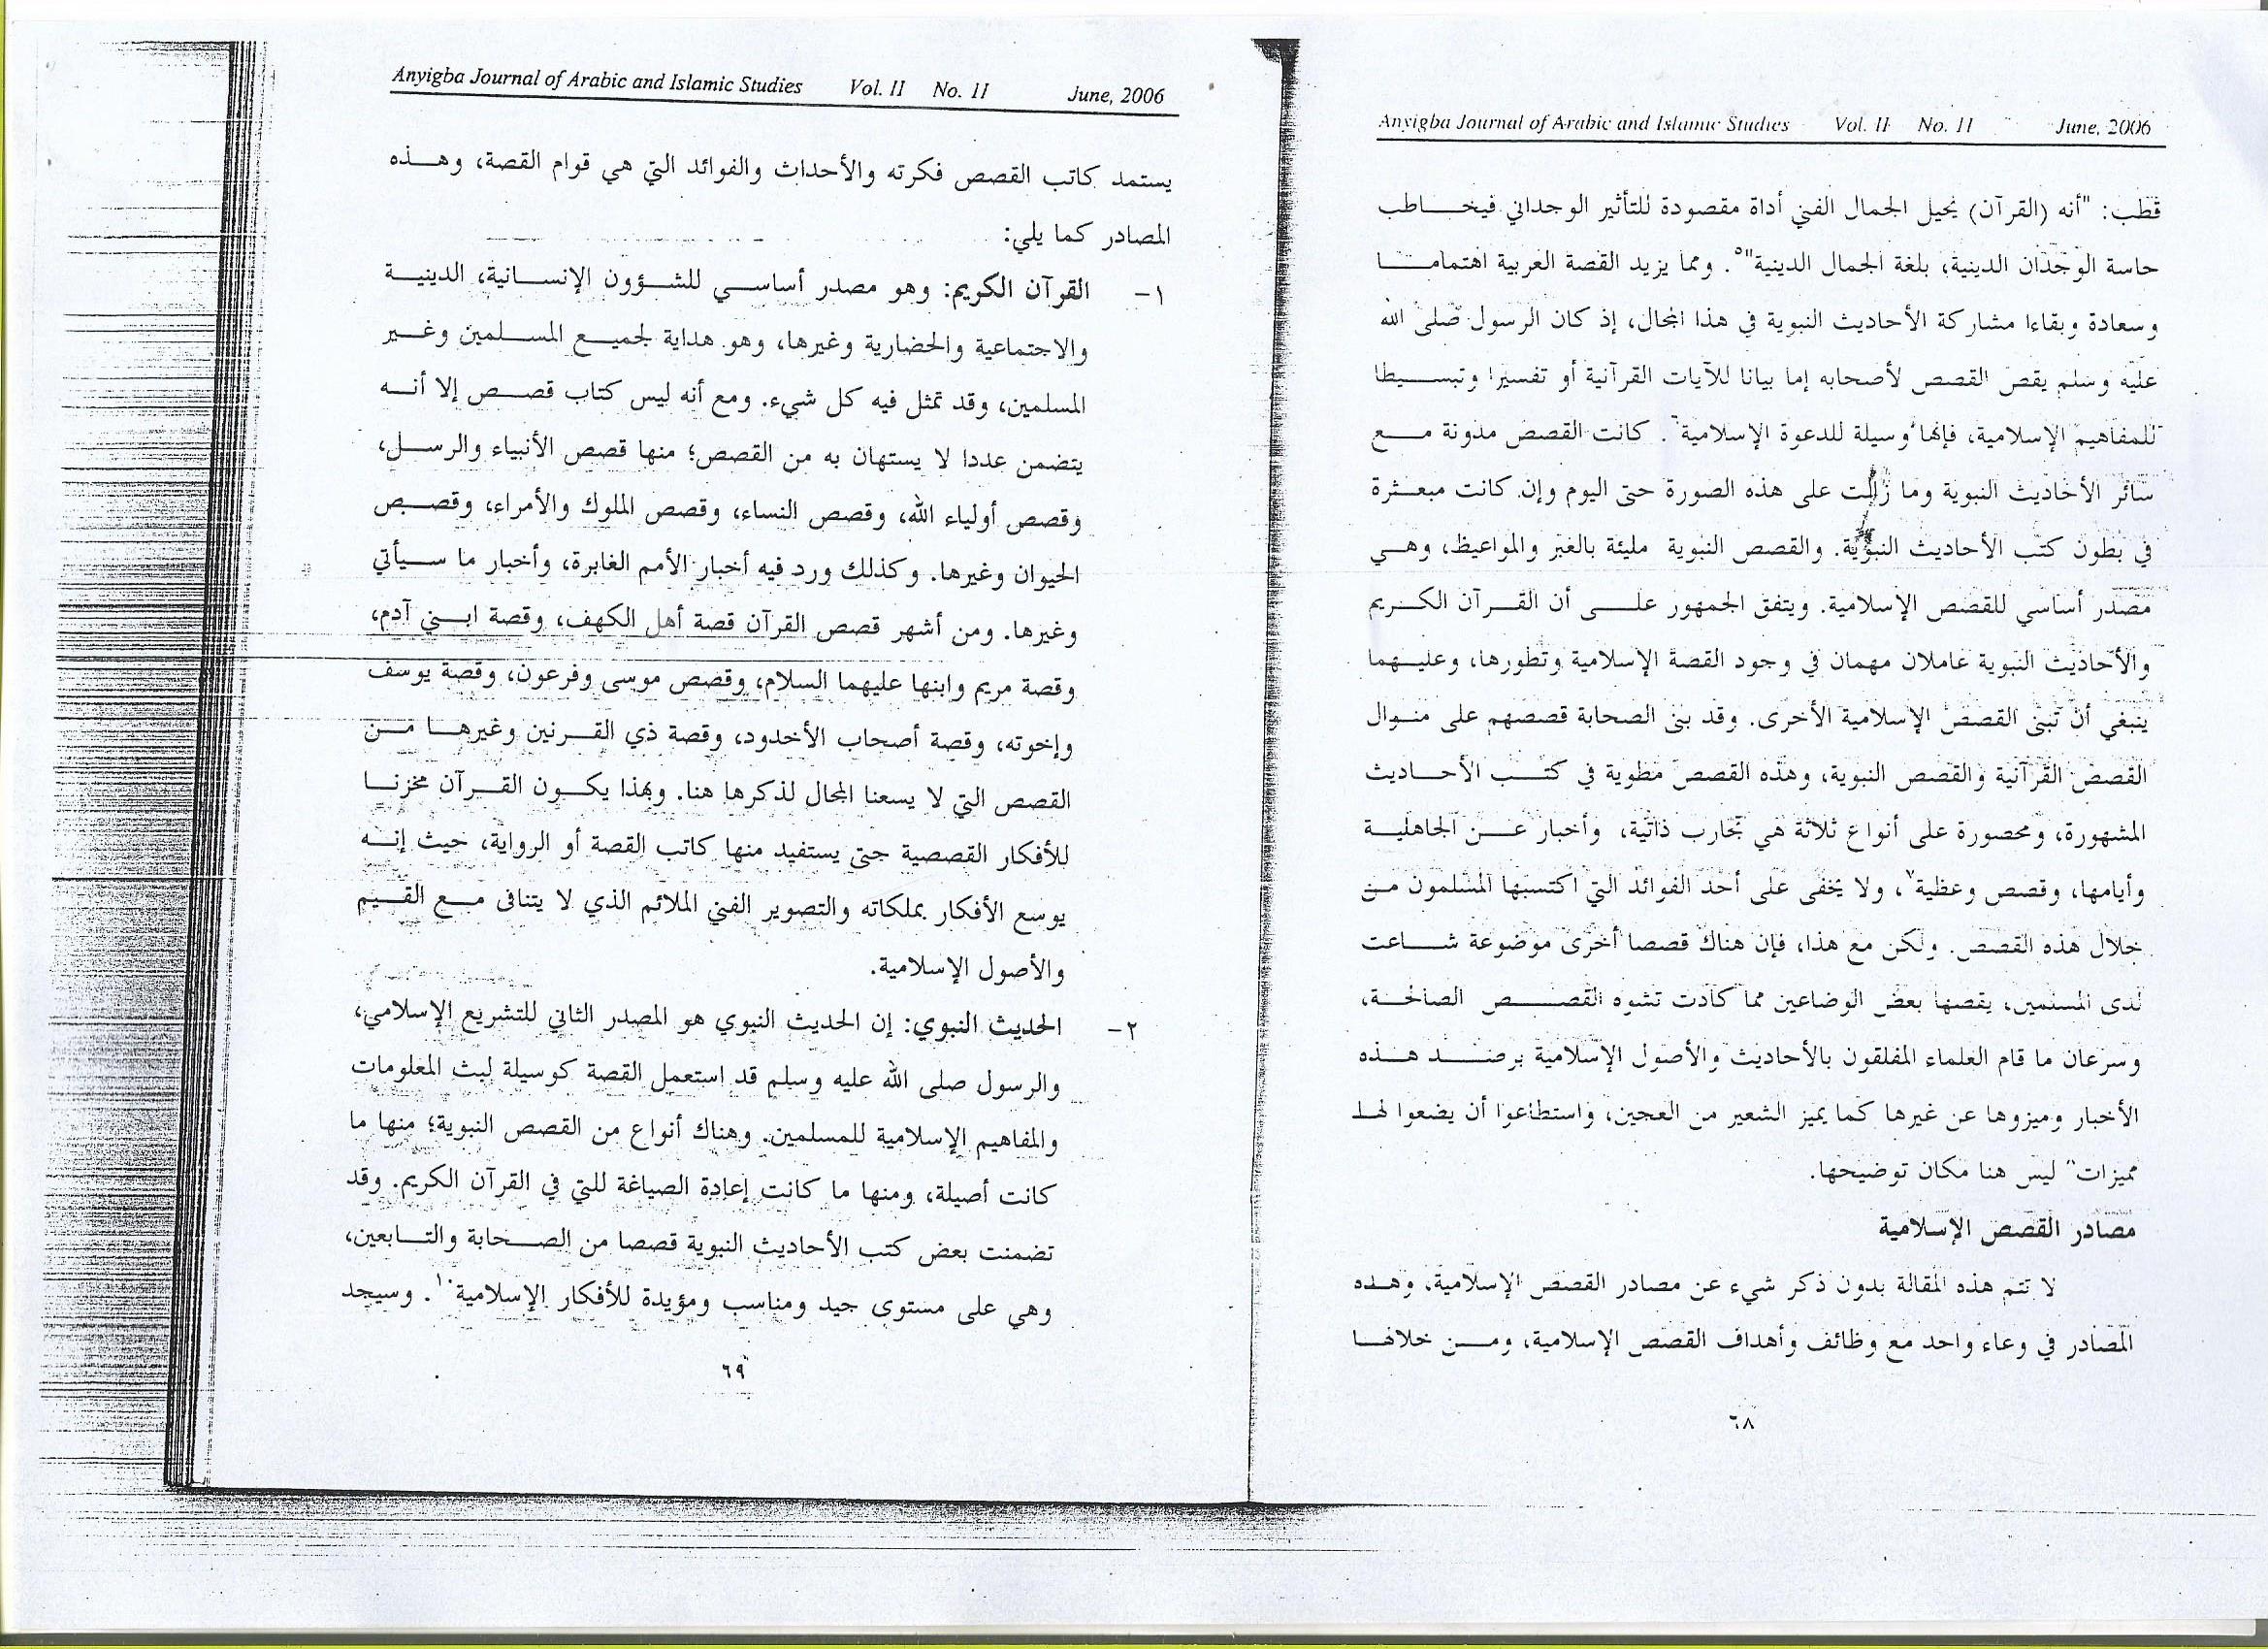 Anyigba Journal of Arabic and Islamic Studies Vol. II No. 11 June, 2006
قطب: "أنه (القرآن) يحيل الجمال الفني أداة مقصودة للتأثير الوجداني فيخاطب
حاسة الوجدان الدينية، بلغة الجمال الدينية"٥. ومما يزيد القصة العربية اهتماما
وسعادة وبقاءا مشاركة الأحاديث النبوية في هذا المجال، إذ كان الرسول صلى الله
عليه وسلم يقص القصص لأصحابه إما بيانا للآيات القرآنية أو تفسيرا وتبسيطا
للمفاهيم الإسلامية، فإنها وسيلة للدعوة الإسلامية. كانت القصص مدونة مع
سائر الأحاديث النبوية وما زالت على هذه الصورة حتى اليوم وإن كانت مبعثرة
في بطون كتب الأحاديث النبوية. والقصص النبوية مليئة بالعبر والمواعيظ، وهي
مصدر أساسي للقصص الإسلامية. ويتفق الجمهور على أن القرآن الكريم
والأحاديث النبوية عاملان مهمان في وجود القصة الإسلامية وتطورها، وعليهما
ينبغي أن تبنى القصص الإسلامية الأخرى. وقد بنى الصحابة قصصهم على منوال
القصص القرآنية والقصص النبوية، وهذه القصص مطوية في كتب الأحاديث
المشهورة، ومحصورة على أنواع ثلاثة هي تجارب ذاتية، وأخبار عن الجاهلية
وأيامها، وقصص وعظية٧، ولا يخفى على أحد الفوائد التي اكتسبها المسلمون من
خلال هذه القصص. ولكن مع هذا، فإن هناك قصصا أخرى موضوعة شاعت
لدى المسلمين، يقصها بعض الوضاعين مما كادت تشوه القصص الصالحة،
وسرعان ما قام العلماء المفلقون بالأحاديث والأصول الإسلامية برصد هذه
الأخبار وميزوها عن غيرها كما يميز الشعير من العجين، واستطاعوا أن يضعوا لها
مميزات ليس هنا مكان توضيحها.
مصادر القصص الإسلامية
لا تتم هذه المقالة بدون ذكر شيء عن مصادر القصص الإسلامية، وهذه
المصادر في وعاء واحد مع وظائف وأهداف القصص الإسلامية، ومن خلالها
٦٨
Anyigba Journal of Arabic and Islamic Studies Vol. II No. 11 June, 2006
يستمد كاتب القصص فكرته والأحداث والفوائد التي هي قوام القصة، وهذه
المصادر كما يلي:
١- القرآن الكريم: وهو مصدر أساسي للشؤون الإنسانية، الدينية
والاجتماعية والحضارية وغيرها، وهو هداية لجميع المسلمين وغير
المسلمين، وقد تمثل فيه كل شيء. ومع أنه ليس كتاب قصص إلا أنه
يتضمن عددا لا يستهان به من القصص؛ منها قصص الأنبياء والرسل،
وقصص أولياء الله، وقصص النساء، وقصص الملوك والأمراء، وقصص
الحيوان وغيرها. وكذلك ورد فيه أخبار الأمم الغابرة، وأخبار ما سيأتي
وغيرها. ومن أشهر قصص القرآن قصة أهل الكهف، وقصة ابني آدم،
وقصة مريم وابنها عليهما السلام، وقصص موسى وفرعون، وقصة يوسف
وإخوته، وقصة أصحاب الأخدود، وقصة ذي القرنين وغيرها من
القصص التي لا يسعنا المجال لذكرها هنا. وبهذا يكون القرآن مخزنا
للأفكار القصصية حتى يستفيد منها كاتب القصة أو الرواية، حيث إنه
يوسع الأفكار بملكاته والتصوير الفني الملائم الذي لا يتنافى مع القيم
والأصول الإسلامية.
٢- الحديث النبوي: إن الحديث النبوي هو المصدر الثاني للتشريع الإسلامي،
والرسول صلى الله عليه وسلم قد استعمل القصة كوسيلة لبث المعلومات
والمفاهيم الإسلامية للمسلمين. وهناك أنواع من القصص النبوية؛ منها ما
كانت أصيلة، ومنها ما كانت إعادة الصياغة للتي في القرآن الكريم. وقد
تضمنت بعض كتب الأحاديث النبوية قصصا من الصحابة والتابعين،
وهي على مستوى جيد ومناسب ومؤيدة للأفكار الإسلامية١٠. وسيجد
٦٩